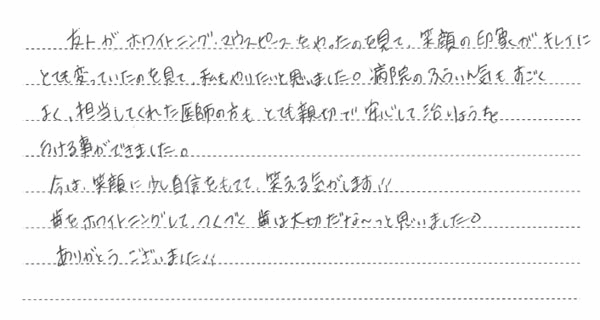 友人がホワイトニング・マウスピースをやったのを見て、笑顔の印象がキレイに
とても変っていたのを見て、私もやりたいと思いました。病院のふういん気もすごく
よく、担当してくれた医師の方もとても親切で安心して治りょうを
うける事ができました。
今は、笑顔に少し自信をもてて、笑える気がします!!
歯をホワイトニングして、つくづく歯は大切だな〜っと思いました。
ありがとうございました!!